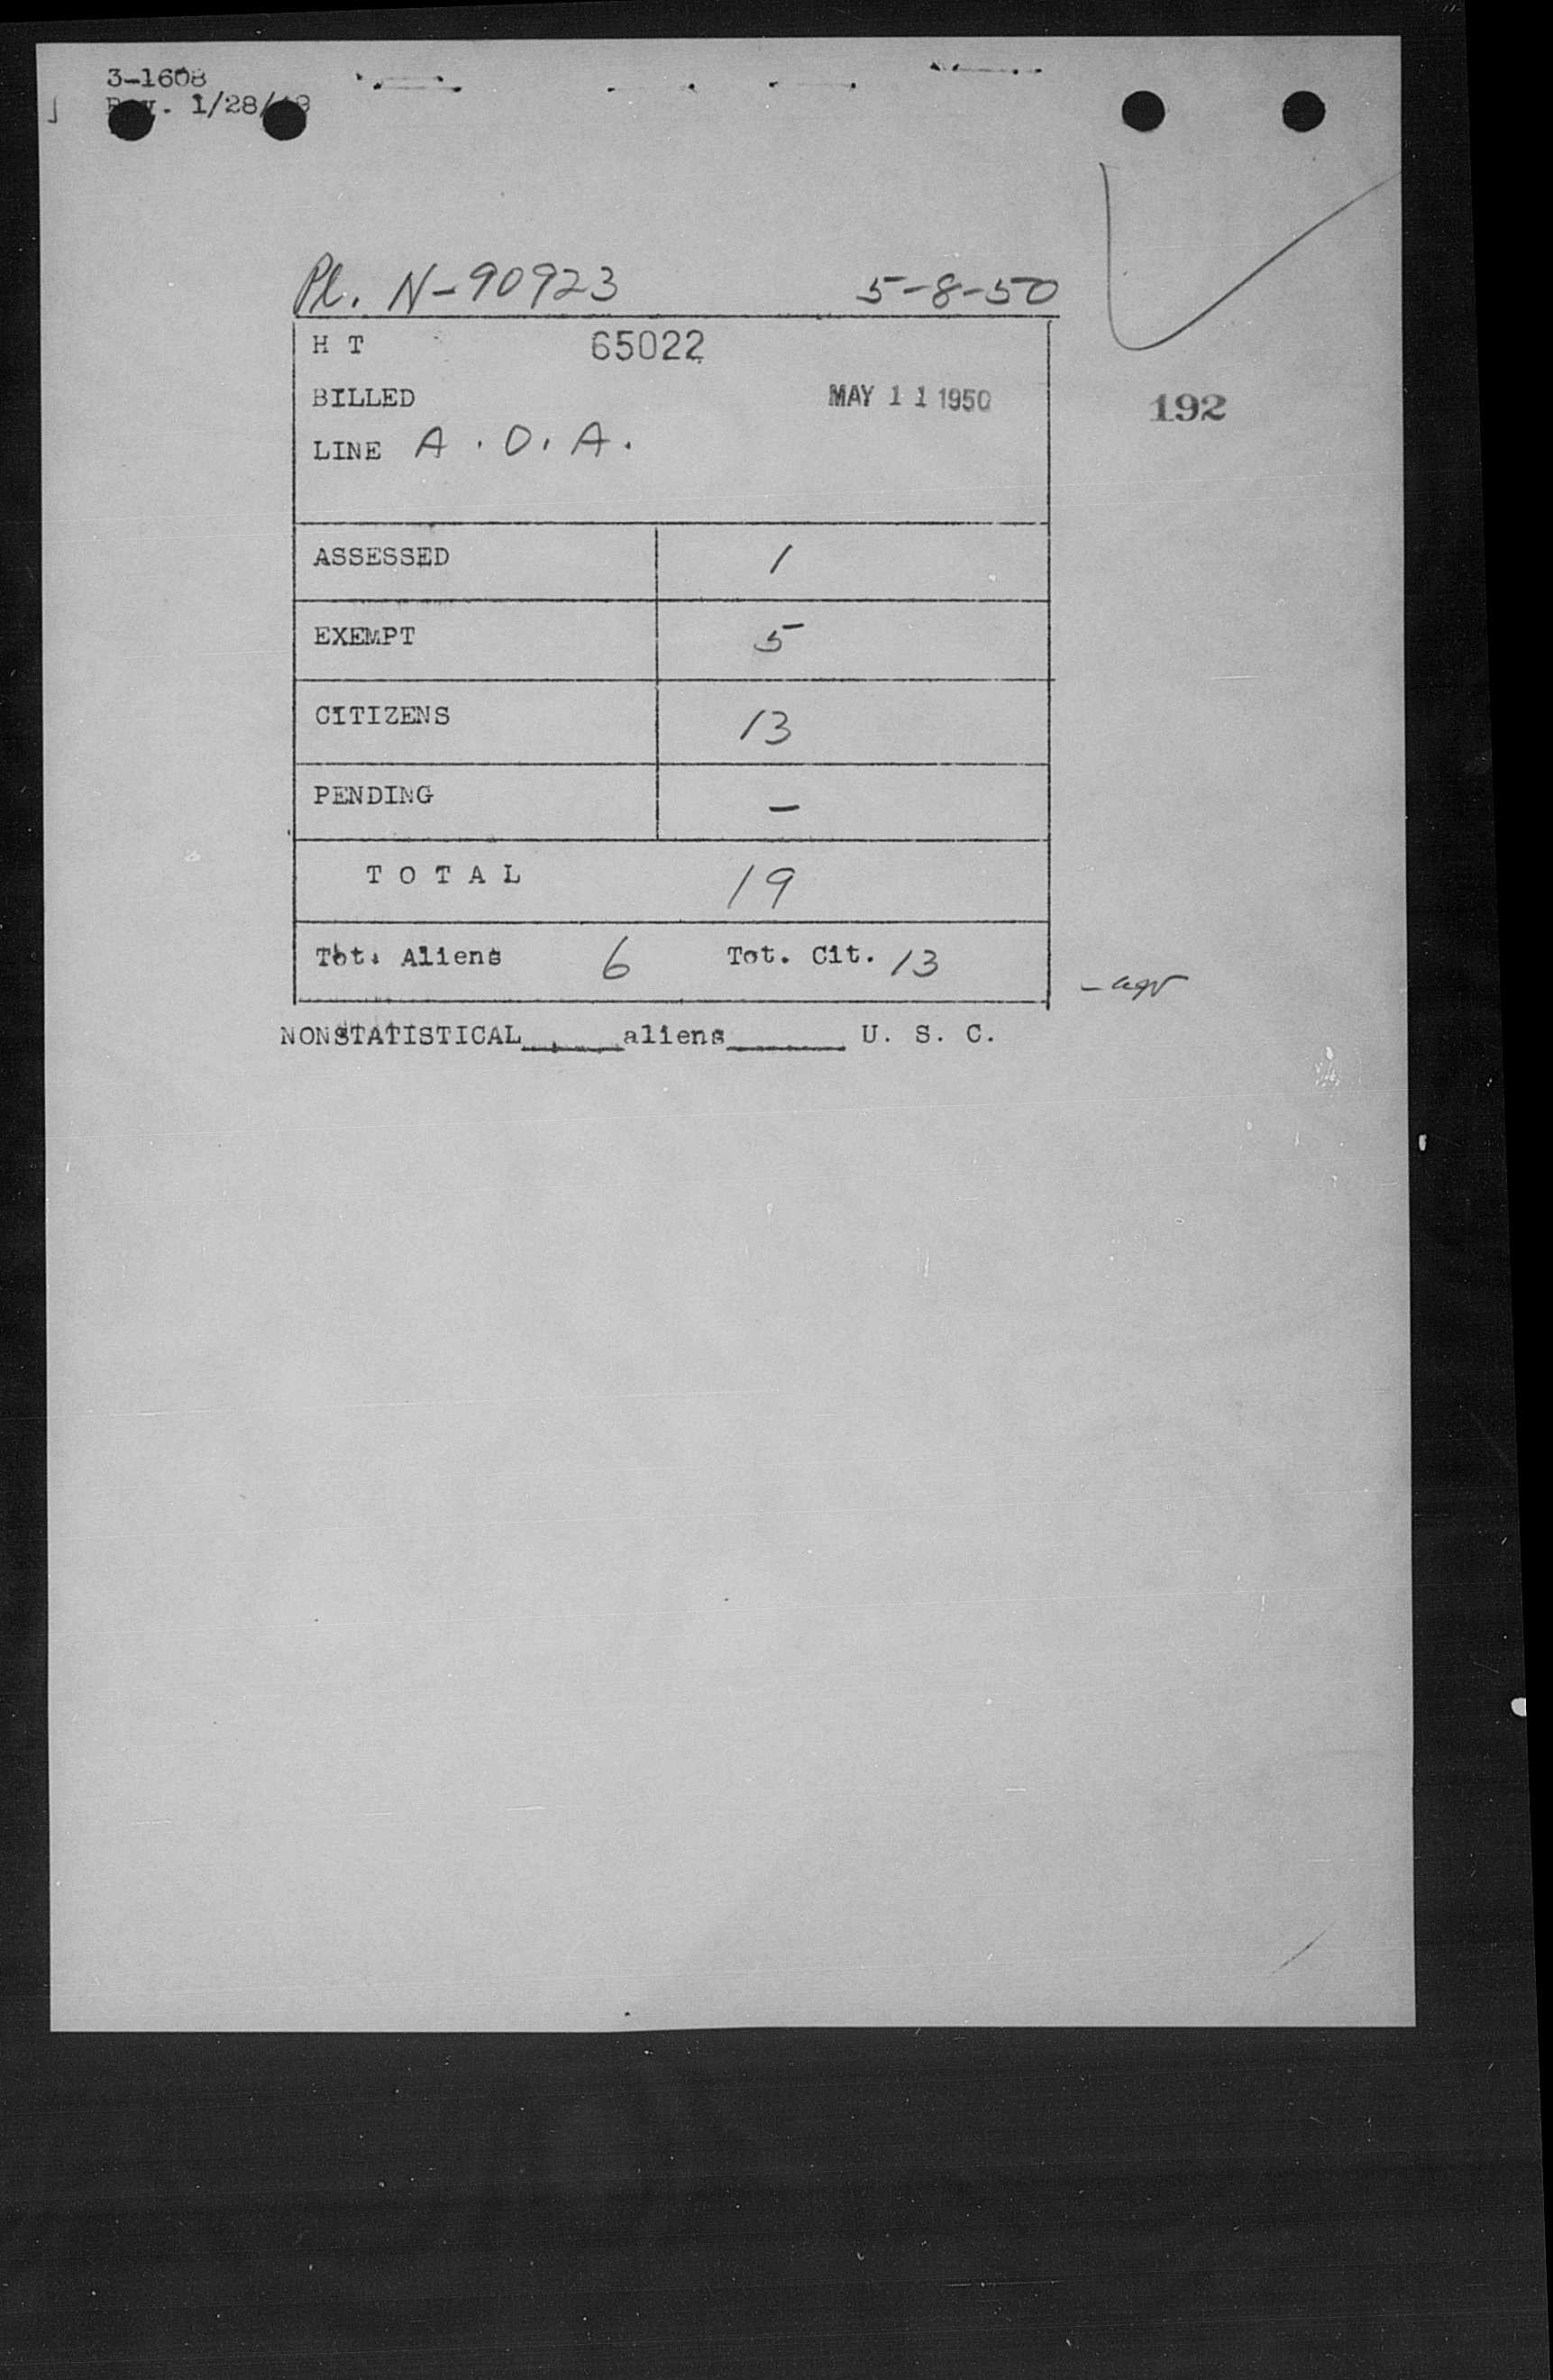 3-1608
Rev. 1/28/49
Pl. N-90923 5-8-50
H T 65022
BILLED MAY 11 1950 192
LINE A.O.A.
ASSESSED 1
EXEMPT 5
CITIZENS 13
PENDING -
T O T A L 19
Tot. Aliens 6 Tot. Cit. 13
NONSTATISTICAL______aliens______ U. S. C.